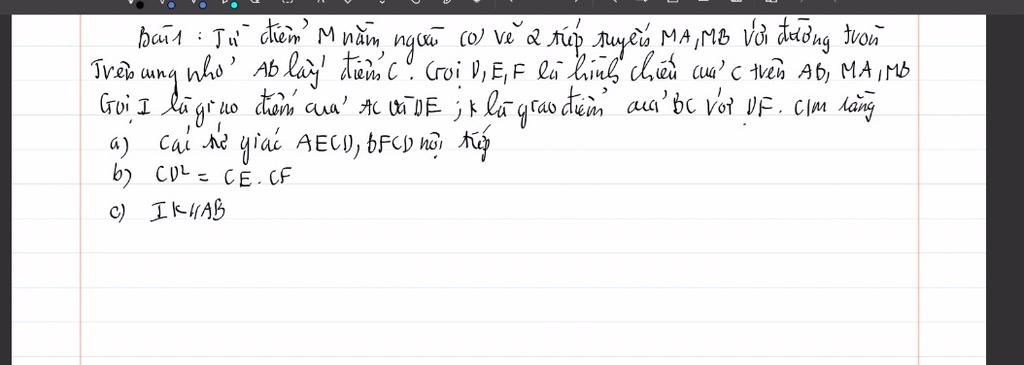 Bài 1 : Từ điểm M nằm ngoài (O) vẽ 2 tiếp tuyến MA, MB với đường tròn
Trên cung nhỏ AB lấy điểm C. Gọi D, E, F là hình chiếu của C trên AB, MA, MB
Gọi I là giao điểm của AC và DE ; K là giao điểm của BC với DF. CIm rằng
a) Các tứ giác AECD, BFCD nội tiếp
b) CD² = CE. CF
c) IK // AB